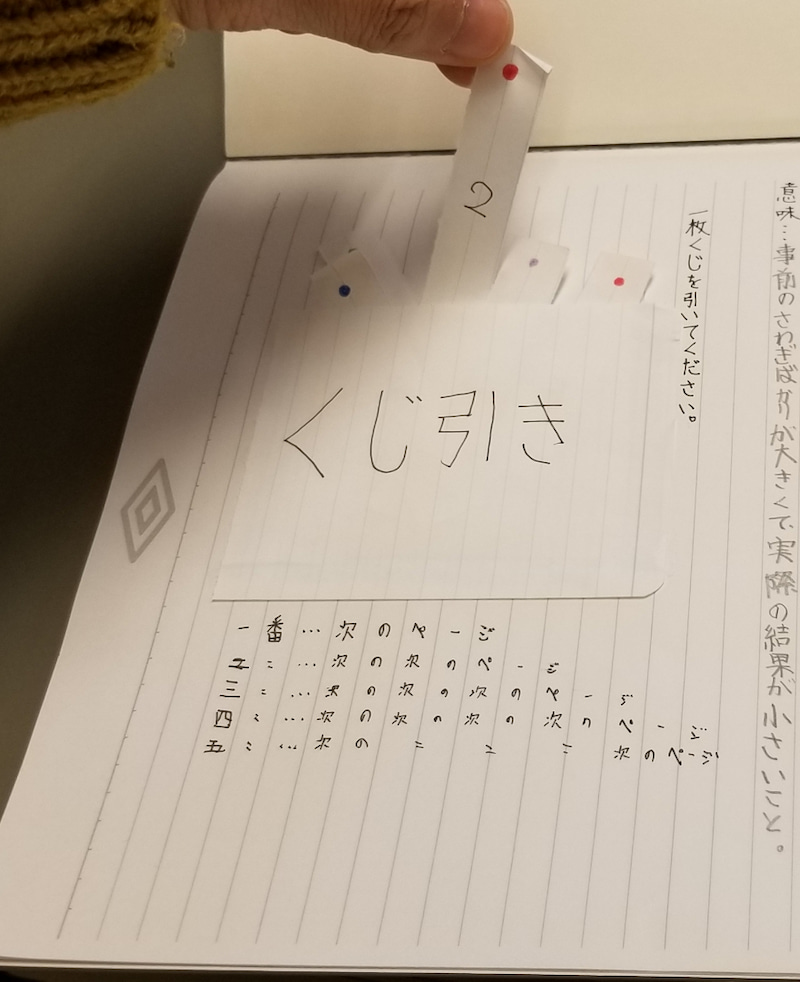 意味…事前のさわぎばかりが大きくて、実際の結果が小さいこと。
一枚くじを引いてください。
2
くじ引き
一番…次のページ
二〃…次の次のページ
三〃…次の次の次のページ
四〃…次の次の次の次のページ
五〃…次の〃〃〃次のページ